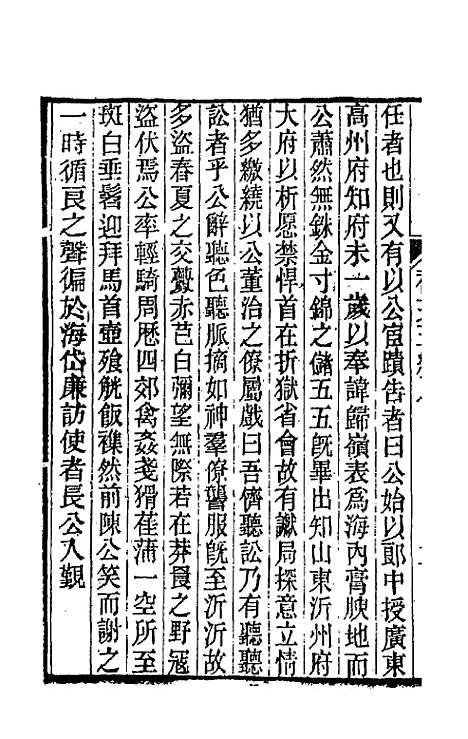 任者也則又有以公宦蹟告者曰公始以郎中授廣東
高州府知府未一歲以奉諱歸嶺表爲海內膏腴地而
公蕭然無銖金寸錦之儲五五旣畢出知山東沂州府
大府以析愿禁悍首在折獄省會故有讞局探意立情
猶多繳繞以公董治之僚屬戲曰吾儕聽訟乃有聽聽
訟者乎公辭聽色聽脈摘如神羣僚讋服旣至沂沂故
多盜春夏之交虋赤芑白彌望無際若在莽㝗之野寇
盜伏焉公率輕騎周歷四郊禽姦戔猾萑蒲一空所至
斑白垂髫迎拜馬首壺飱觥飯襍然前陳公笑而謝之
一時循良之聲徧於海岱廉訪使者長公入覲